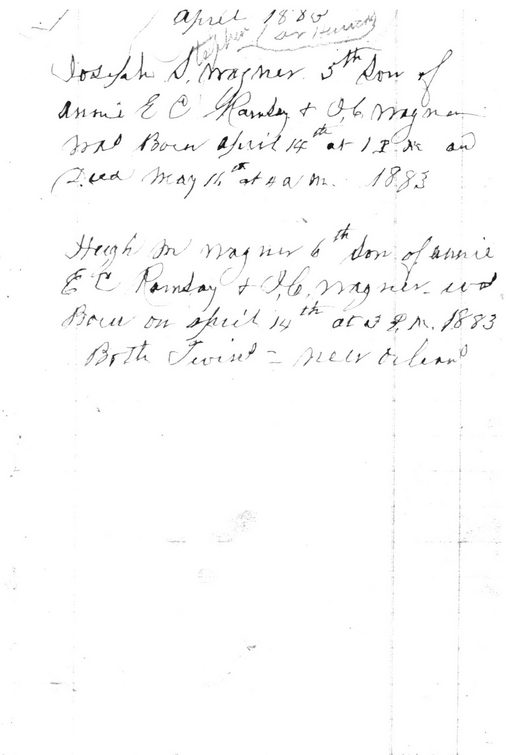 April 1880
Stephen
Joseph S. Wagner 5th Son of
Annie E C Ramsay & J. C. Wagner
was Born April 14th at 1 P. M. and
Died May 16th at 4 a M. 1883
Hugh M Wagner 6th Son of Annie
E C Ramsay & J. C. Wagner was
Born on April 14th at 3 P. M. 1883
Both Twins = New Orleans